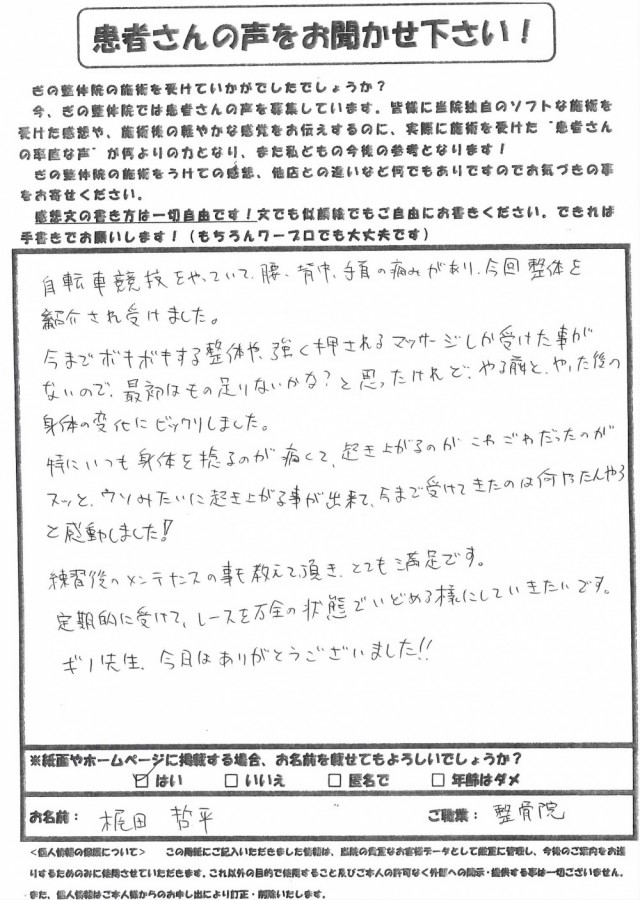 患者さんの声をお聞かせ下さい！
ぎの整体院の施術を受けていかがでしたでしょうか？
今、ぎの整体院では患者さんの声を募集しています。皆様に当院独自のソフトな施術を
受けた感想や、施術後の軽やかな感覚をお伝えするのに、実際に施術を受けた“患者さん
の率直な声”が何よりの力となり、また私どもの今後の参考となります！
ぎの整体院の施術をうけての感想、他店との違いなど何でもありですのでお気づきの事
をお寄せください。
感想文の書き方は一切自由です！文でも似顔絵でもご自由にお書きください。できれば
手書きでお願いします！（もちろんワープロでも大丈夫です）
自転車競技をやっていて、腰、背中、手首の痛みがあり、今回整体を
紹介され受けました。
今までボキボキする整体や、強く押されるマッサージしか受けた事が
ないので、最初はもの足りないかな？と思ったけれど、やる前と、やった後の
身体の変化にビックリしました。
特にいつも身体を捻るのが痛くて、起き上がるのがこわごわだったのが
スッと、ウソみたいに起き上がる事が出来て、今まで受けてきたのは何やったんやろ
と感動しました！
練習後のメンテナンスの事も教えて頂き、とても満足です。
定期的に受けて、レースを万全の状態でいどめる様にしていきたいです。
ギノ先生、今日はありがとうございました!!
※紙面やホームページに掲載する場合、お名前を載せてもよろしいでしょうか？
☑はい □いいえ □匿名で □年齢はダメ
お名前： 梶田 哲平 ご職業： 整骨院
＜個人情報の保護について＞ この用紙にご記入いただきました情報は、当院の貴重なお客様データとして厳重に管理し、今後のご案内をお送
りするためのみに使用させていただきます。これ以外の目的で使用すること及びご本人の許可なく外部への開示・提供する事は一切ございません。
また、個人情報はご本人様からのお申し出により訂正・削除いたします。